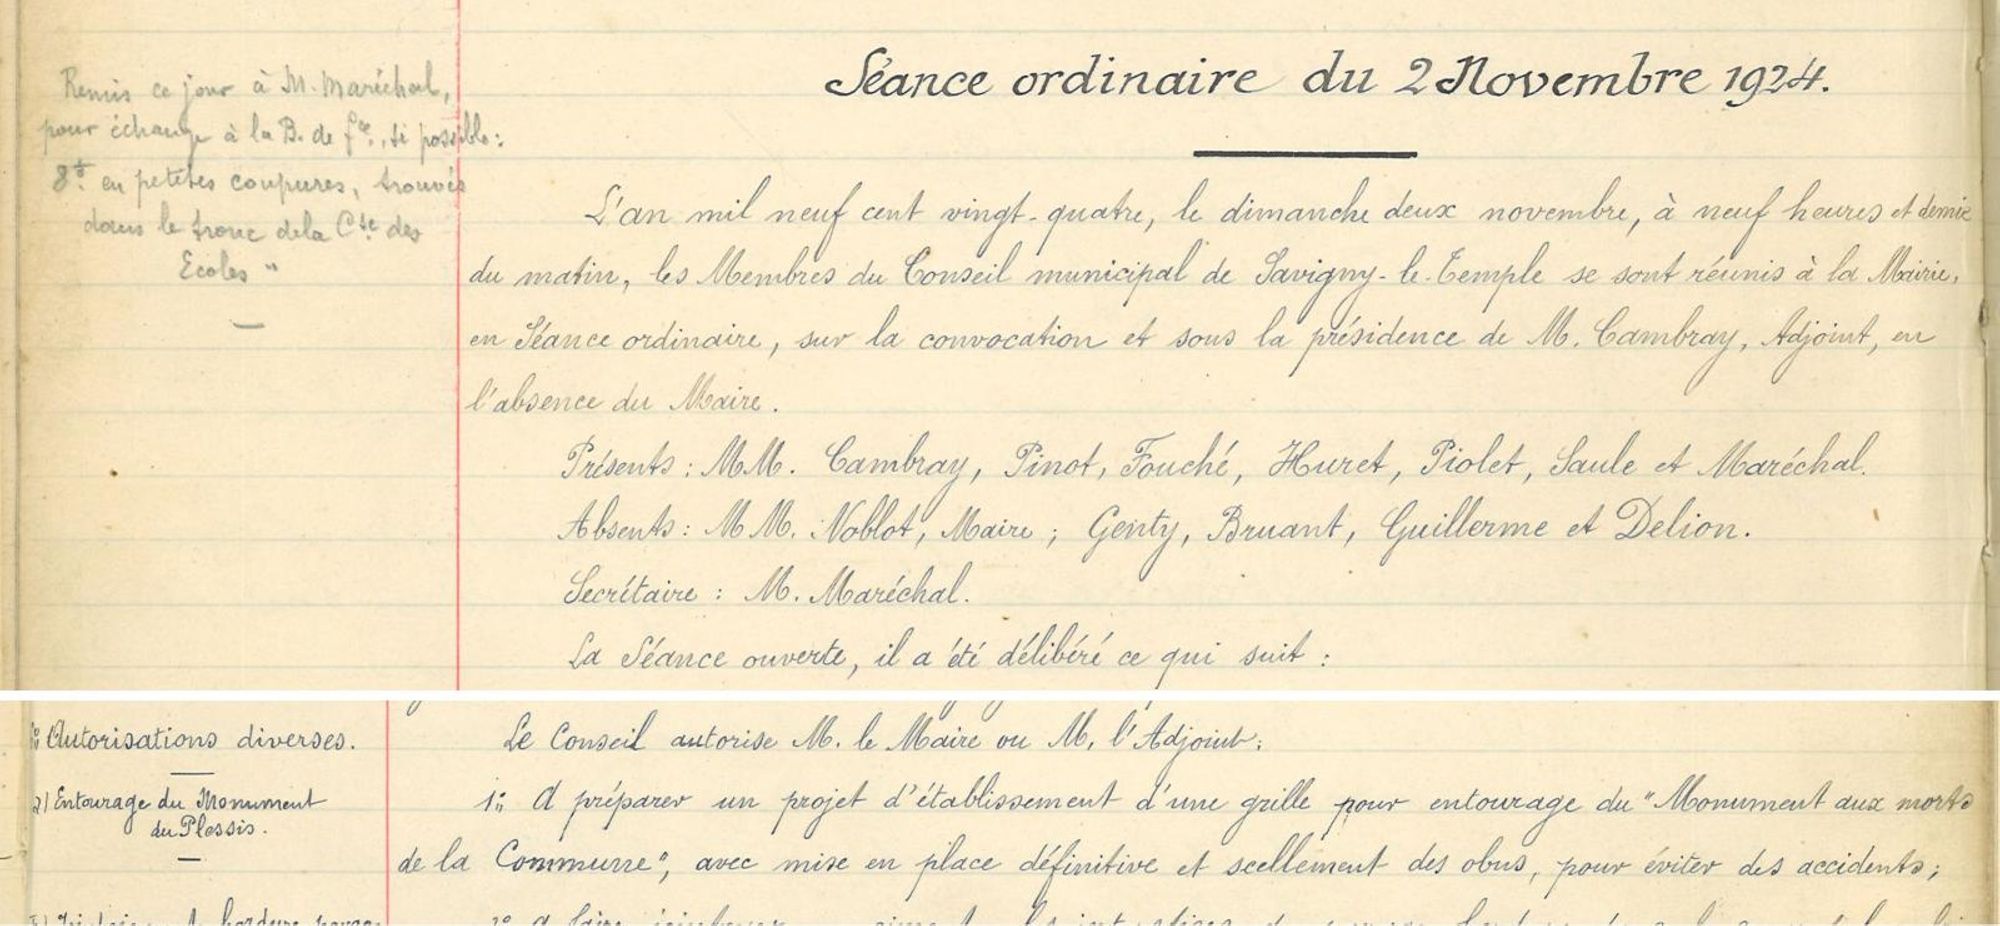 Séance ordinaire du 2 Novembre 1924.
Remis ce jour à M. Maréchal,
pour échange à la B. de fce., si possible :
8f. en petites coupures, trouvés
dans le tronc de la Cse. des
Ecoles "
L'an mil neuf cent vingt-quatre, le dimanche deux novembre, à neuf heures et demie
du matin, les Membres du Conseil municipal de Savigny-le-Temple se sont réunis à la Mairie,
en Séance ordinaire, sur la convocation et sous la présidence de M. Cambray, Adjoint, en
l'absence du Maire.
Présents : MM. Cambray, Pinot, Fouché, Huret, Piolet, Saule et Maréchal.
Absents : MM. Noblot, Maire ; Genty, Bruant, Guillerme et Delion.
Secrétaire : M. Maréchal.
La Séance ouverte, il a été délibéré ce qui suit :
1° Autorisations diverses.
a) Entourage du Monument
du Plessis.
Le Conseil autorise M. le Maire ou M. l'Adjoint :
1° A préparer un projet d'établissement d'une grille pour entourage du "Monument aux morts
de la Commune", avec mise en place définitive et scellement des obus, pour éviter des accidents ;